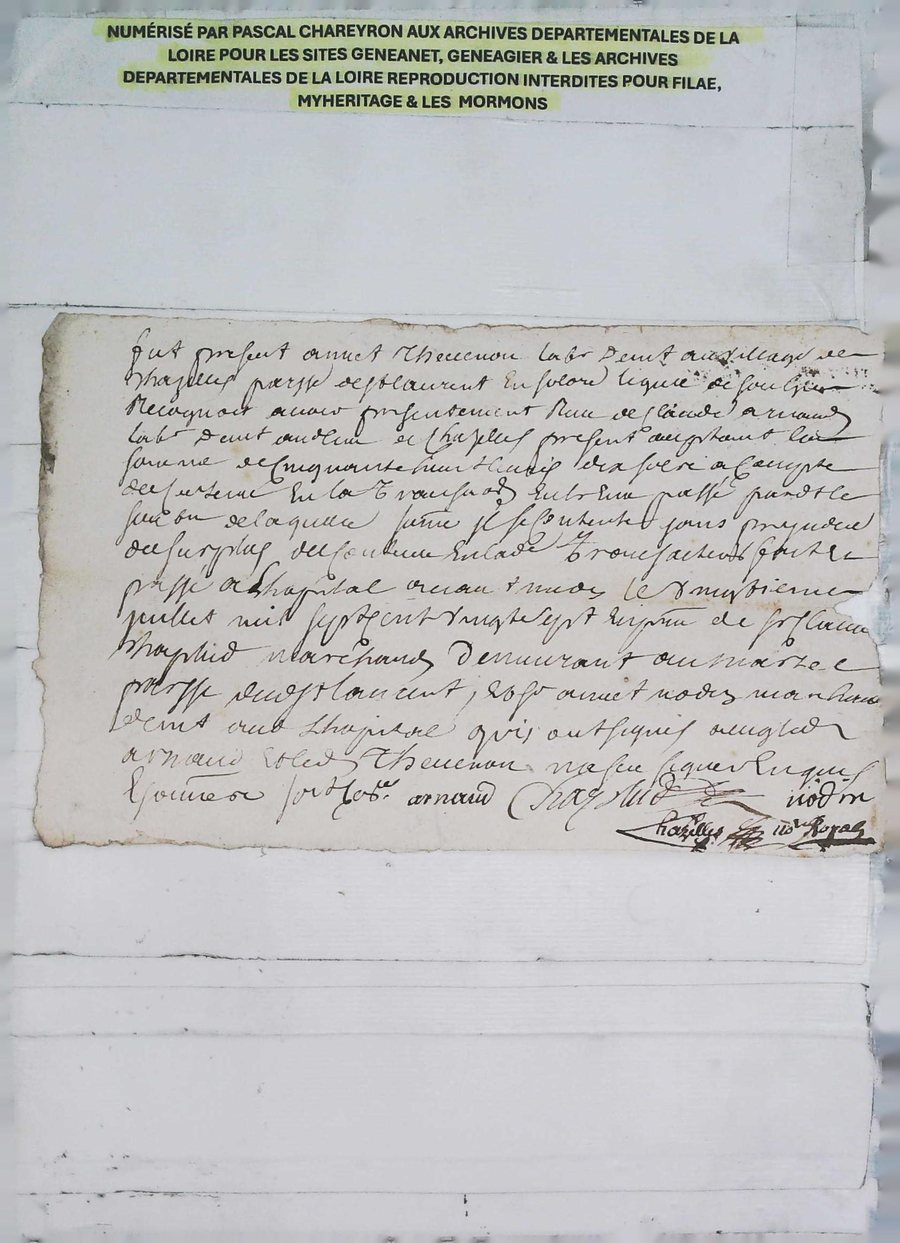 NUMÉRISÉ PAR PASCAL CHAREYRON AUX ARCHIVES DEPARTEMENTALES DE LA
LOIRE POUR LES SITES GENEANET, GENEAGIER & LES ARCHIVES
DEPARTEMENTALES DE LA LOIRE REPRODUCTION INTERDITES POUR FILAE,
MYHERITAGE & LES MORMONS
fut present annet Thevenon labr demt au village de
Chazelles parsse de st laurent en solore lequel de son gre
Recognoit avoir presentement Receu de Claude arnaud
labr demt audlieu de Chazelles present acceptant la
somme de Cinquante huit livres dix sols a Compte
de en la Transaon Entre Eux passé pardt le
de laquelle somme il se Contente sans prejudice
du surplus de Contenu En lade Transaction fait Et
passé a Lhopital avant midy le vingtieme
juillet mil sept cent vingt sept En pnce de sr
marchand Demeurant au
parsse dud st laurent, Et sr annet nodin marchand
demt aud Lhopital qui ont signé avec led
arnaud Et led Thevenon na sceu signer Enquis
Et sommé arnaud nodin
Chazelles nore Royal